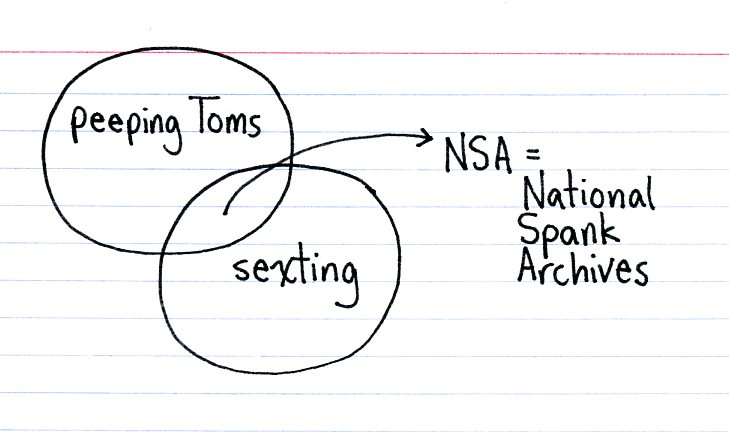 peeping Toms
sexting
NSA =
National
Spank
Archives